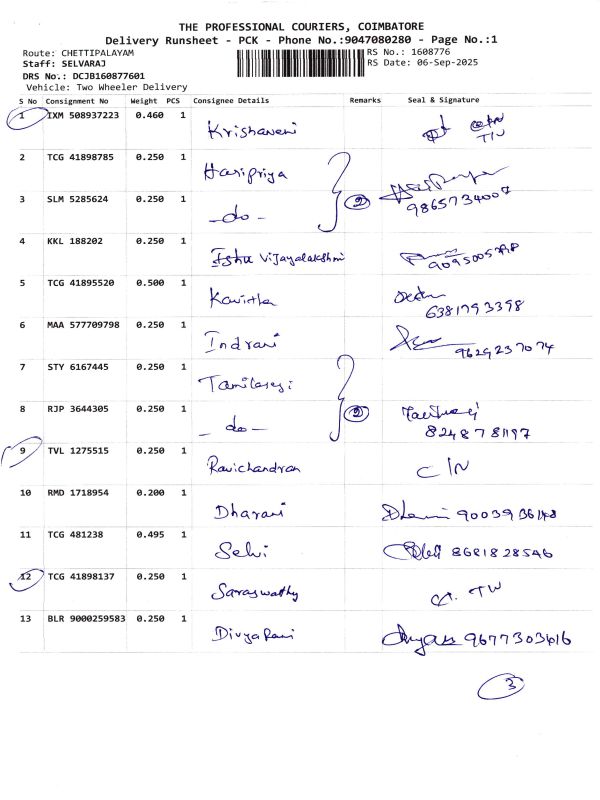 THE PROFESSIONAL COURIERS, COIMBATORE
Delivery Runsheet - PCK - Phone No.:9047080280 - Page No.:1
Route: CHETTIPALAYAM RS No.: 1608776
Staff: SELVARAJ RS Date: 06-Sep-2025
DRS No.: DCJB160877601
Vehicle: Two Wheeler Delivery
S No Consignment No Weight PCS Consignee Details Remarks Seal & Signature
1 IXM 508937223 0.460 1 Krishaveni
2 TCG 41898785 0.250 1 Haripriya
3 SLM 5285624 0.250 1 - do - 2 9865734007
4 KKL 188202 0.250 1 Ishu Vijayalakshmi
5 TCG 41895520 0.500 1 Kavitha 6381793398
6 MAA 577709798 0.250 1 Indrani 9629237074
7 STY 6167445 0.250 1 Tamilarasi
8 RJP 3644305 0.250 1 - do - 2 8248781197
9 TVL 1275515 0.250 1 Ravichandran C/N
10 RMD 1718954 0.200 1 Dharani
11 TCG 481238 0.495 1 Selvi 8681828546
12 TCG 41898137 0.250 1 Saraswathy
13 BLR 9000259583 0.250 1 DivyaRani 9677303416
3